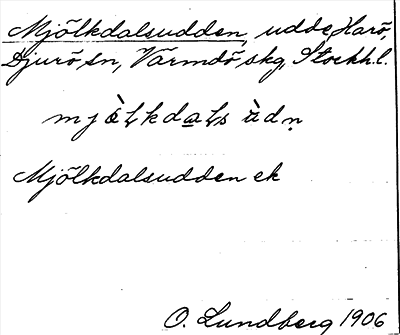 Mjölkdalsudden, udde, Harö,
Djurö sn, Värmdö skg, Stockh.l.
Mjölkdalsudden ek
O. Lundberg 1906